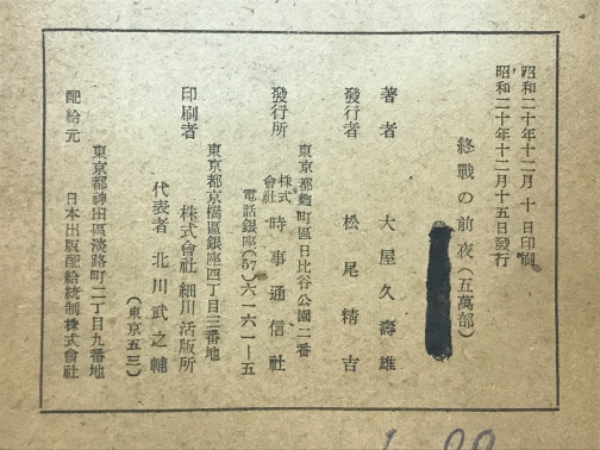 昭和二十年十二月 十 日印刷
昭和二十年十二月十五日發行
終戰の前夜(五萬部)
著者 大屋久壽雄
發行者 松尾精吉
東京都麴町區日比谷公園二番
發行所 株式會社 時事通信社
電話銀座(57)六一六一―五
東京都京橋區銀座四丁目三番地
印刷者 株式會社 細川活版所
代表者 北川武之輔
(東京五三)
東京都神田區淡路町二丁目九番地
配給元 日本出版配給統制株式會社